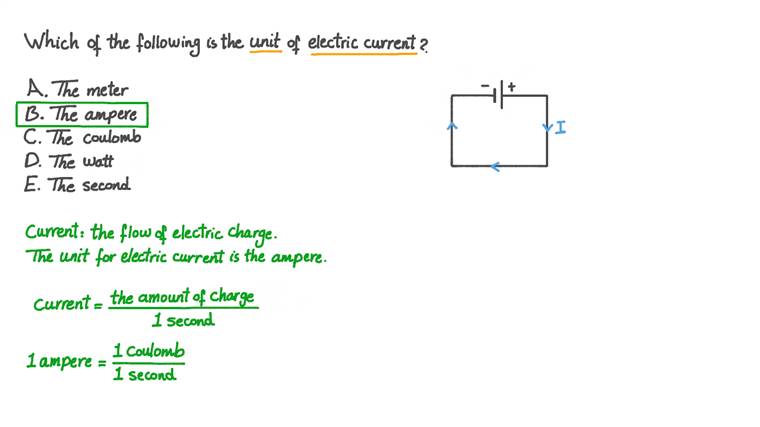 Which of the following is the unit of electric current?
A. The meter
B. The ampere
C. The coulomb
D. The watt
E. The second
- +
I
Current: the flow of electric charge.
The unit for electric current is the ampere.
Current = the amount of charge / 1 second
1 ampere = 1 Coulomb / 1 second